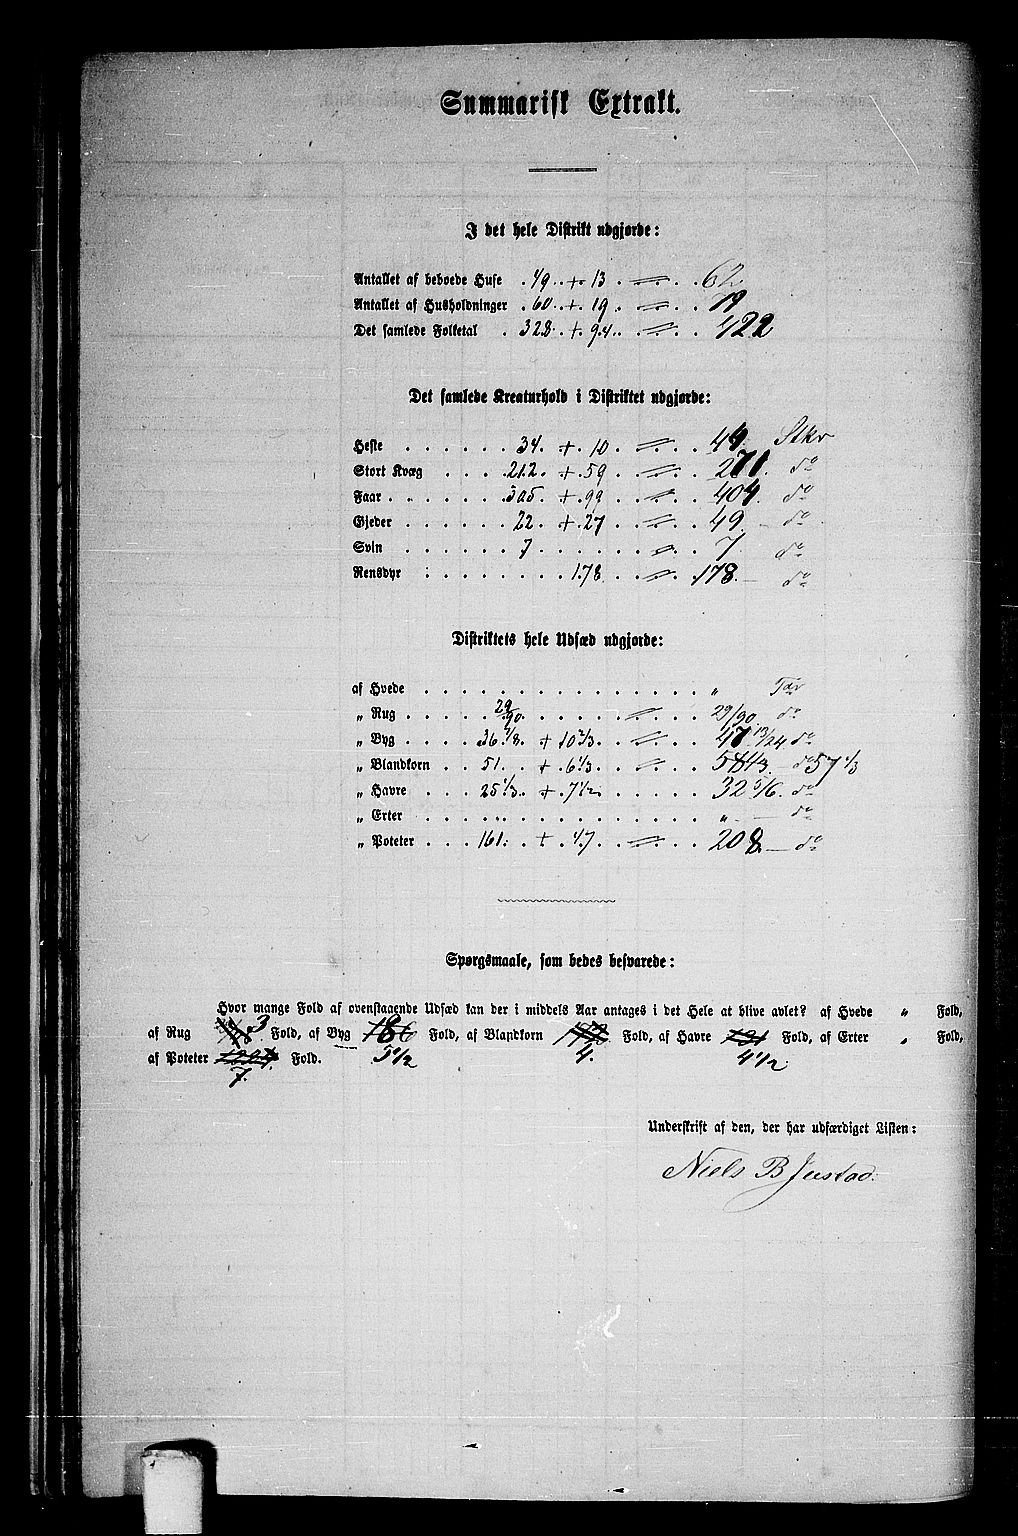 Summarisk Extrakt.
I det hele Distrikt udgjorde:
Antallet af beboede Huse . 49 . + 13 . = . . 62
Antallet af Husholdninger . 60 . + 19 . = . . 79
Det samlede Folketal . 328 . + 94 . . = . . 422
Det samlede Kreaturhold i Distriktet udgjorde:
Heste . . . . . . 34 . + . 10 . = . . 44 Stkr
Stort Kvæg . . . . 212 . + 59 . . = . . 271 do
Faar . . . . . . 305 . + . 99 . . = . . 404 do
Gjeder . . . . . . 22 . + . 27 . . = . . 49 do
Svin . . . . . . 7 . . . . . . = . . 7 do
Rensdyr . . . . . . . . 178 . . = . . 178 do
Distriktets hele Udsæd udgjorde:
af Hvede . . . . . . . . . . . . . . „ Tdr
„ Rug . . . . . 29/90 . . . . . = . . 29/90 do
„ Byg . . . . 36 7/8 . + 10 2/3 . . = . . 47 13/24 do
„ Blandkorn . . 51 . . + . 6 1/3 . . = . . 58 1/3 do 57 1/3
„ Havre . . . 25 1/3 . + . 7 1/2 . . . . . . 32 5/6 do
„ Erter . . . . „ . . . . . . . . . . „ do
„ Poteter . . . 161 . + . 47 . . = . . 208 do
Spørgsmaale, som bedes besvarede:
Hvor mange Fold af ovenstaaende Udsæd kan der i middels Aar antages i det Hele at blive avlet? af Hvede „ Fold,
af Rug 3 Fold, af Byg Fold, af Blandkorn Fold, af Havre Fold, af Erter „ Fold,
af Poteter Fold. 5 1/2 4. 4 1/2
7.
Underskrift af den, der har udfærdiget Listen:
Niels B Justad.